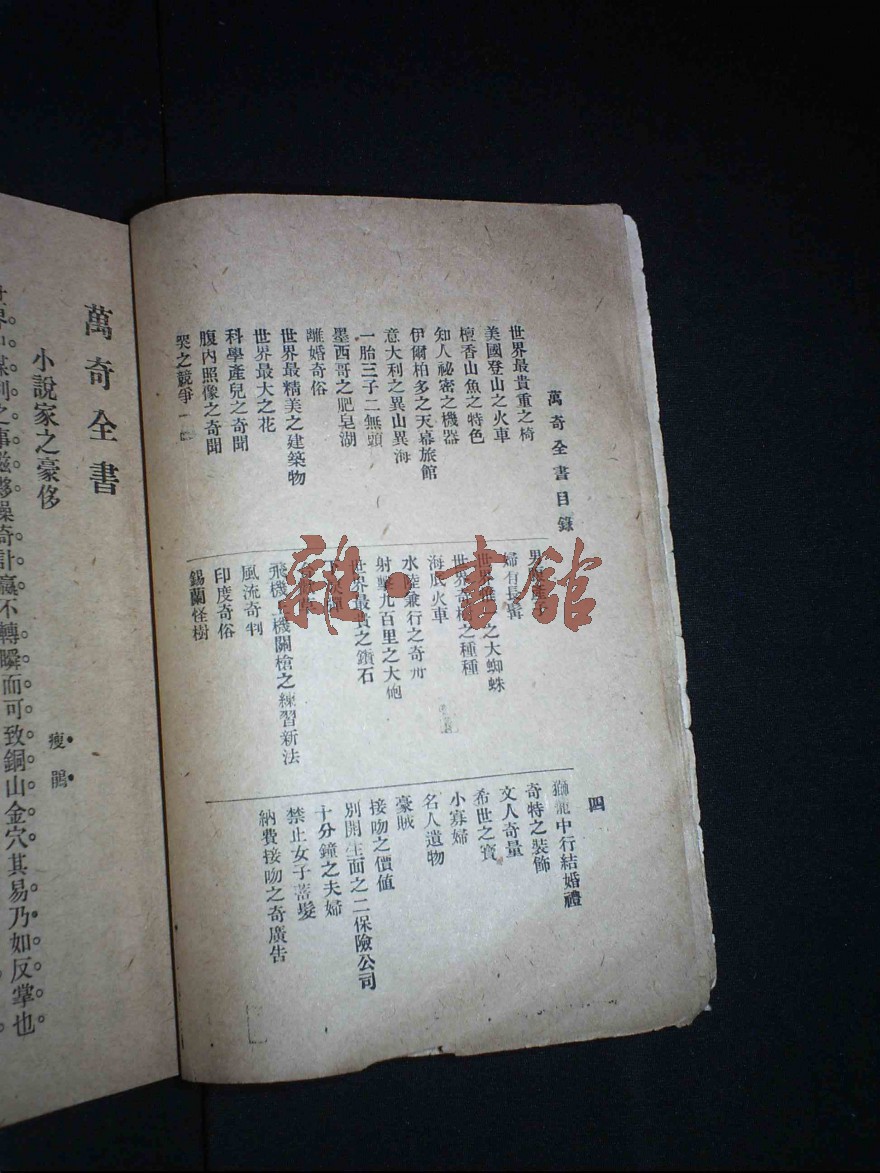 萬奇全書目錄
四
世界最貴重之椅
美國登山之火車
檀香山魚之特色
知人祕密之機器
伊爾柏多之天幕旅館
意大利之異山異海
一胎三子二無頭
墨西哥之肥皂湖
離婚奇俗
世界最精美之建築物
世界最大之花
科學產兒之奇聞
腹內照像之奇聞
哭之競爭
男
婦有長
世界之大蜘蛛
世界奇之種種
海底火車
水陸兼行之奇舟
射擊九百里之大砲
世界最貴之鑽石
彈
飛機機關槍之練習新法
風流奇判
印度奇俗
錫蘭怪樹
獅籠中行結婚禮
奇特之裝飾
文人奇量
希世之寶
小寡婦
名人遺物
豪賊
接吻之價值
別開生面之二保險公司
十分鐘之夫婦
禁止女子蓄髮
納費接吻之奇廣告
萬奇全書
小說家之豪侈
瘦鵑
操奇計贏不轉瞬而可致銅山金穴其易乃如反掌也
雜·書館